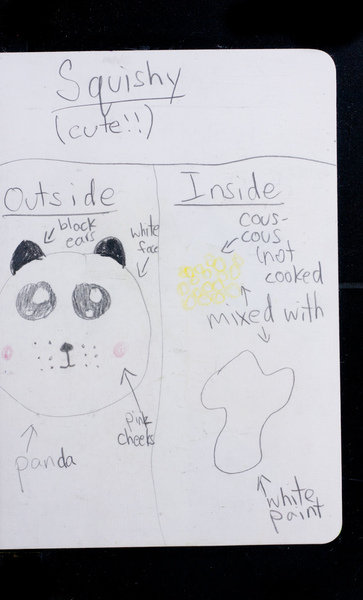 Squishy
(cute!!)
Outside
block
ears
white
face
pink
cheeks
panda
Inside
cous-
cous
(not
cooked
mixed with
white
paint